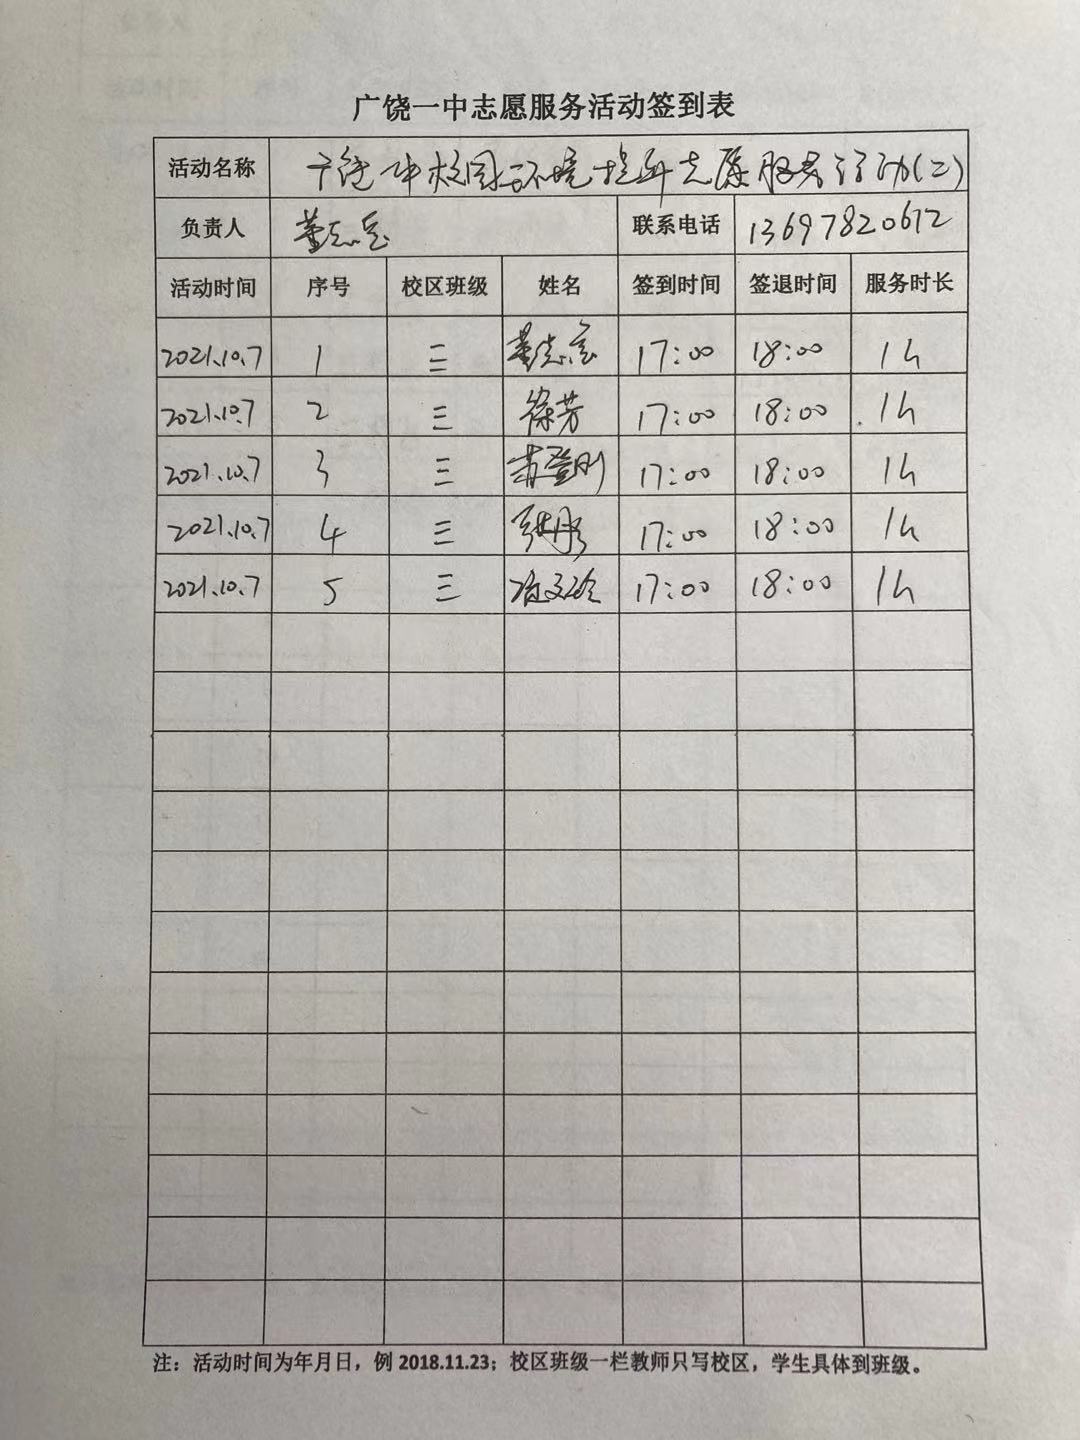 广饶一中志愿服务活动签到表
活动名称 广饶一中校园环境提升志愿服务活动(二)
负责人 董志宝 联系电话 13697820612
活动时间 序号 校区班级 姓名 签到时间 签退时间 服务时长
2021.10.7 1 三 董志宝 17:00 18:00 1h
2021.10.7 2 三 徐芳 17:00 18:00 1h
2021.10.7 3 三 17:00 18:00 1h
2021.10.7 4 三 张彤 17:00 18:00 1h
2021.10.7 5 三 17:00 18:00 1h
注：活动时间为年月日，例 2018.11.23；校区班级一栏教师只写校区，学生具体到班级。